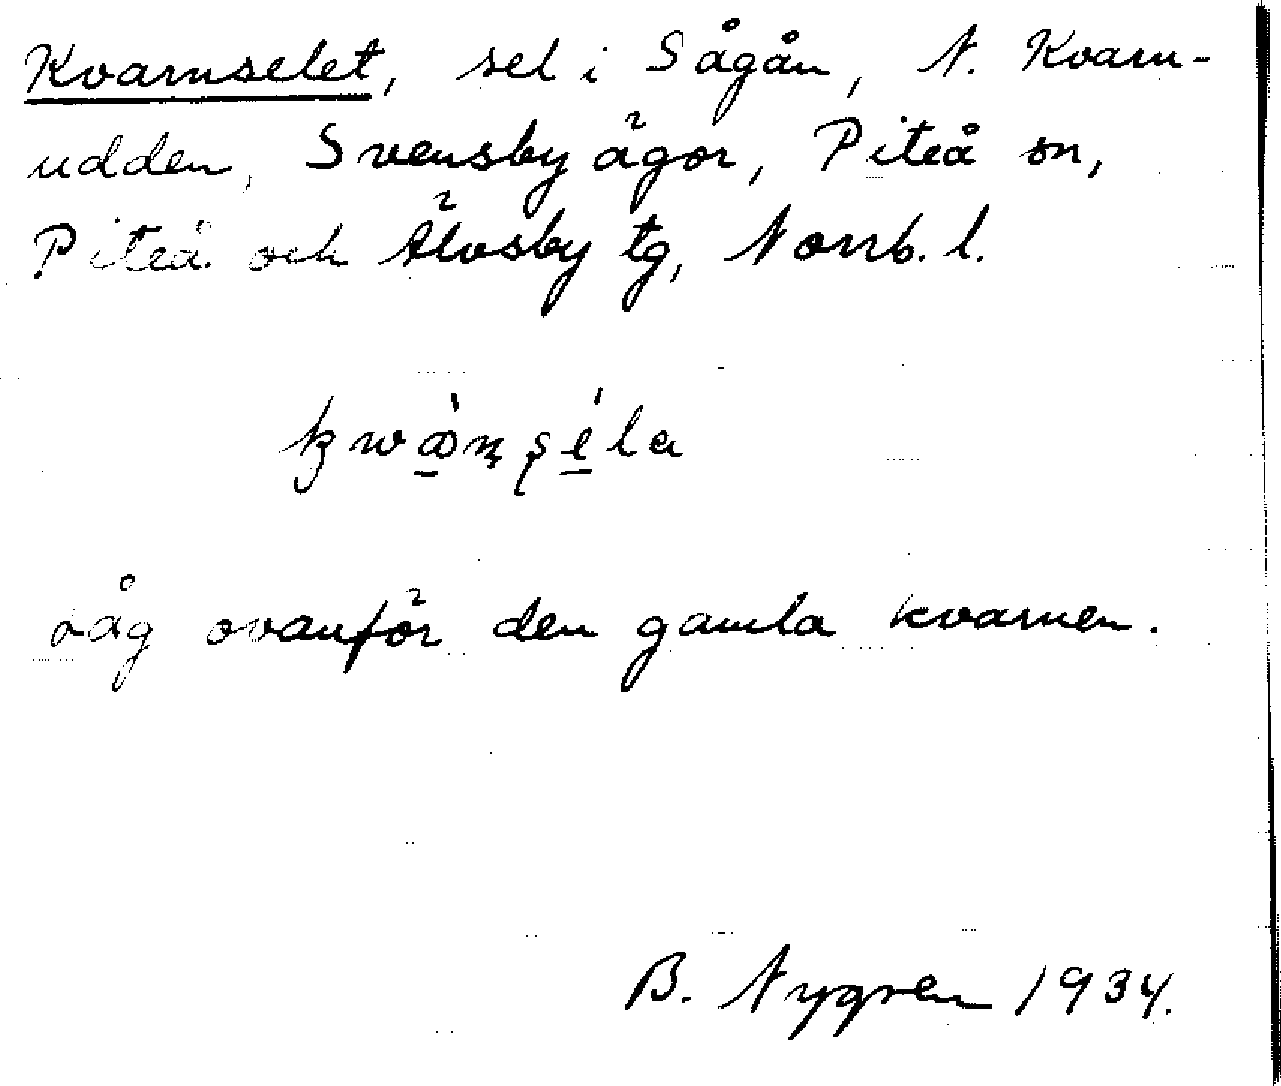 Kvarnselet, sel i Sågån, N. Kvarn-
udden, Svensby ägor, Piteå sn,
Piteå och Älvsby tg, Norrb. l.
Låg ovanför den gamla kvarnen.
B. Nygren 1934.